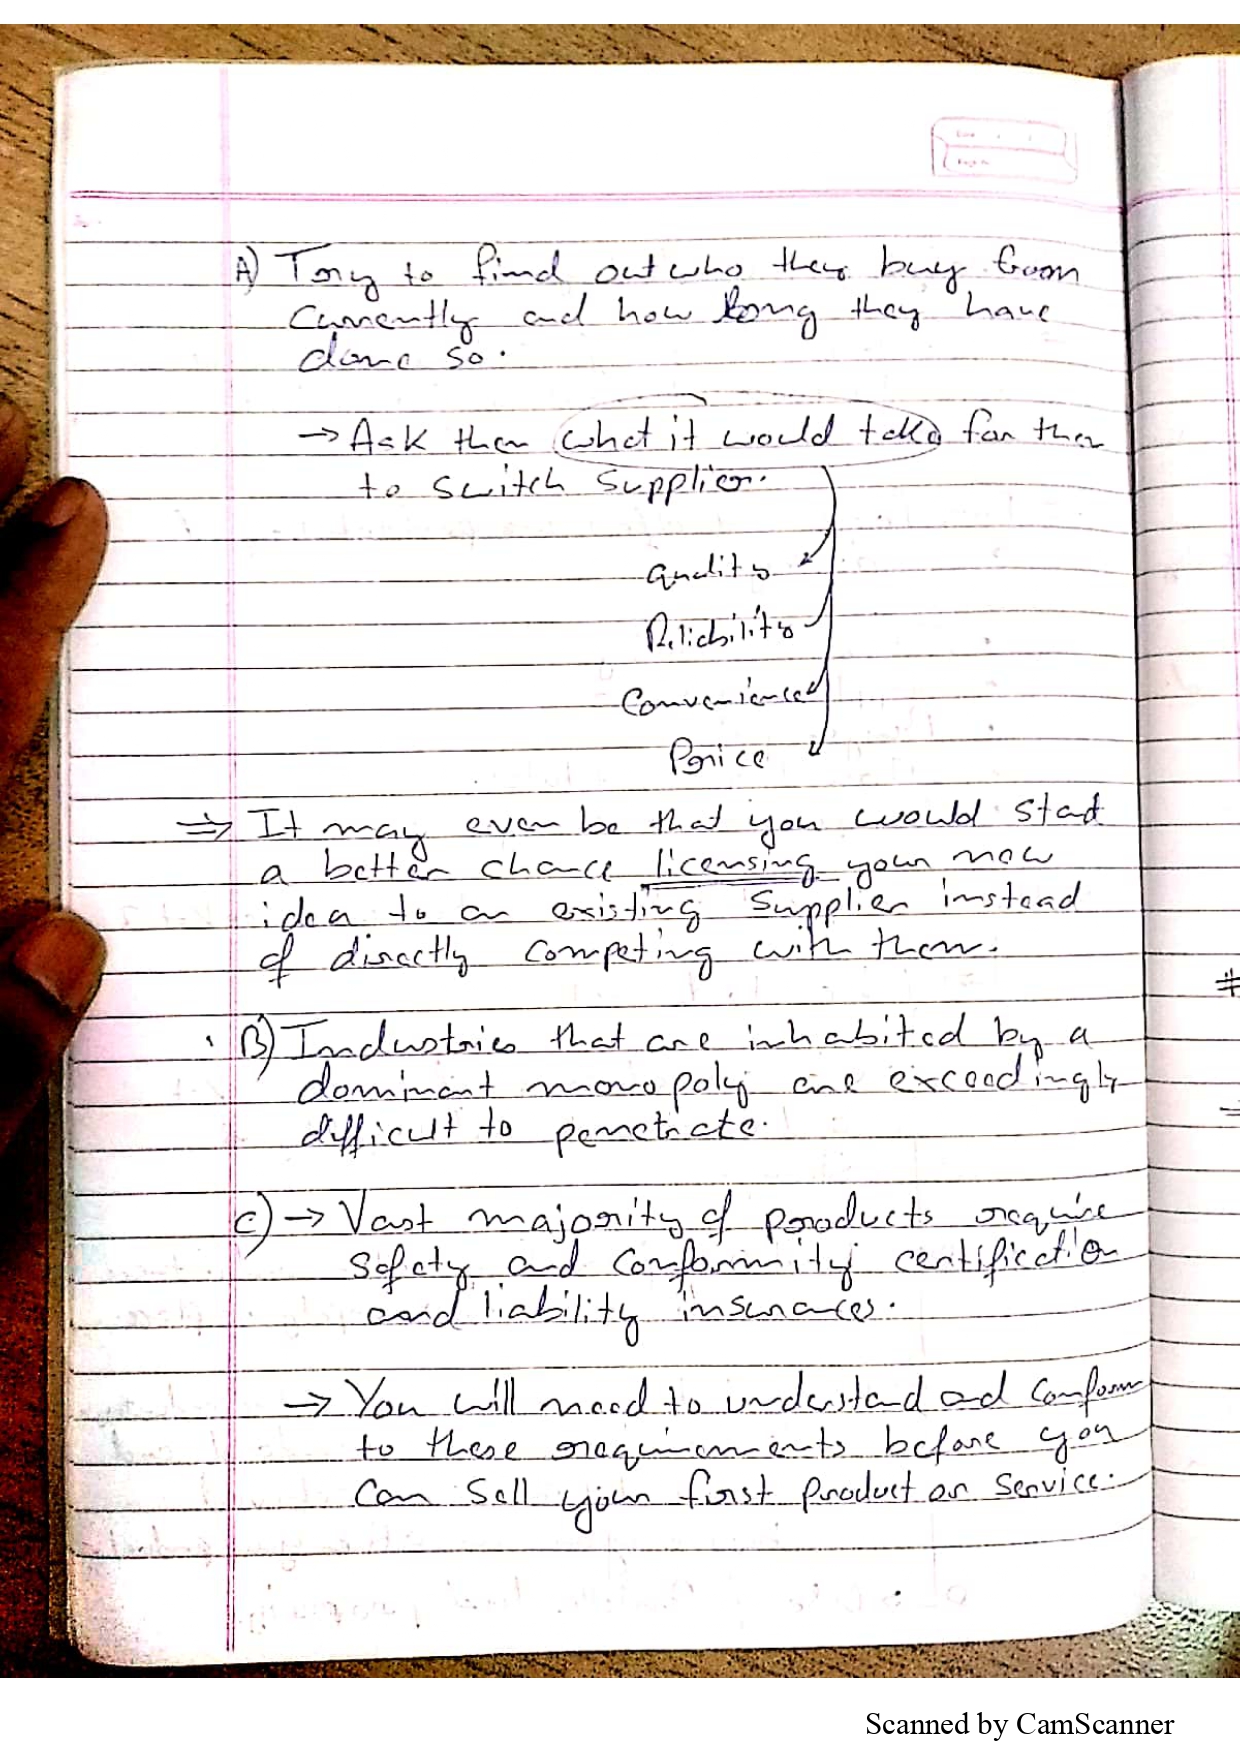 A) Try to find out who they buy from
Currently and how long they have
done so.
→ Ask them what it would take for them
to switch supplier.
Quality
Reliability
Convenience
Price
⇒ It may even be that you would stad
a better chance licensing your new
idea to an existing supplier instead
of directly competing with them.
B) Industries that are inhabited by a
dominant monopoly are exceedingly
difficult to penetrate.
C) → Vast majority of products require
Safety and Conformity certification
and liability insurances.
→ You will need to understand and Conform
to these requirements before you
Can Sell your first product or Service.
Scanned by CamScanner